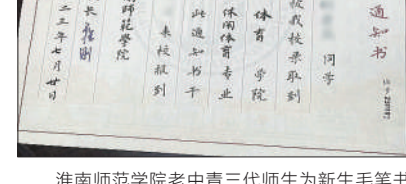 通知书
同学
被我校录取到
体育 学院
休闲体育专业
此通知书于
来校报到
师范学院
长
二三年七月廿日
淮南师范学院老中青三代师生为新生毛笔书